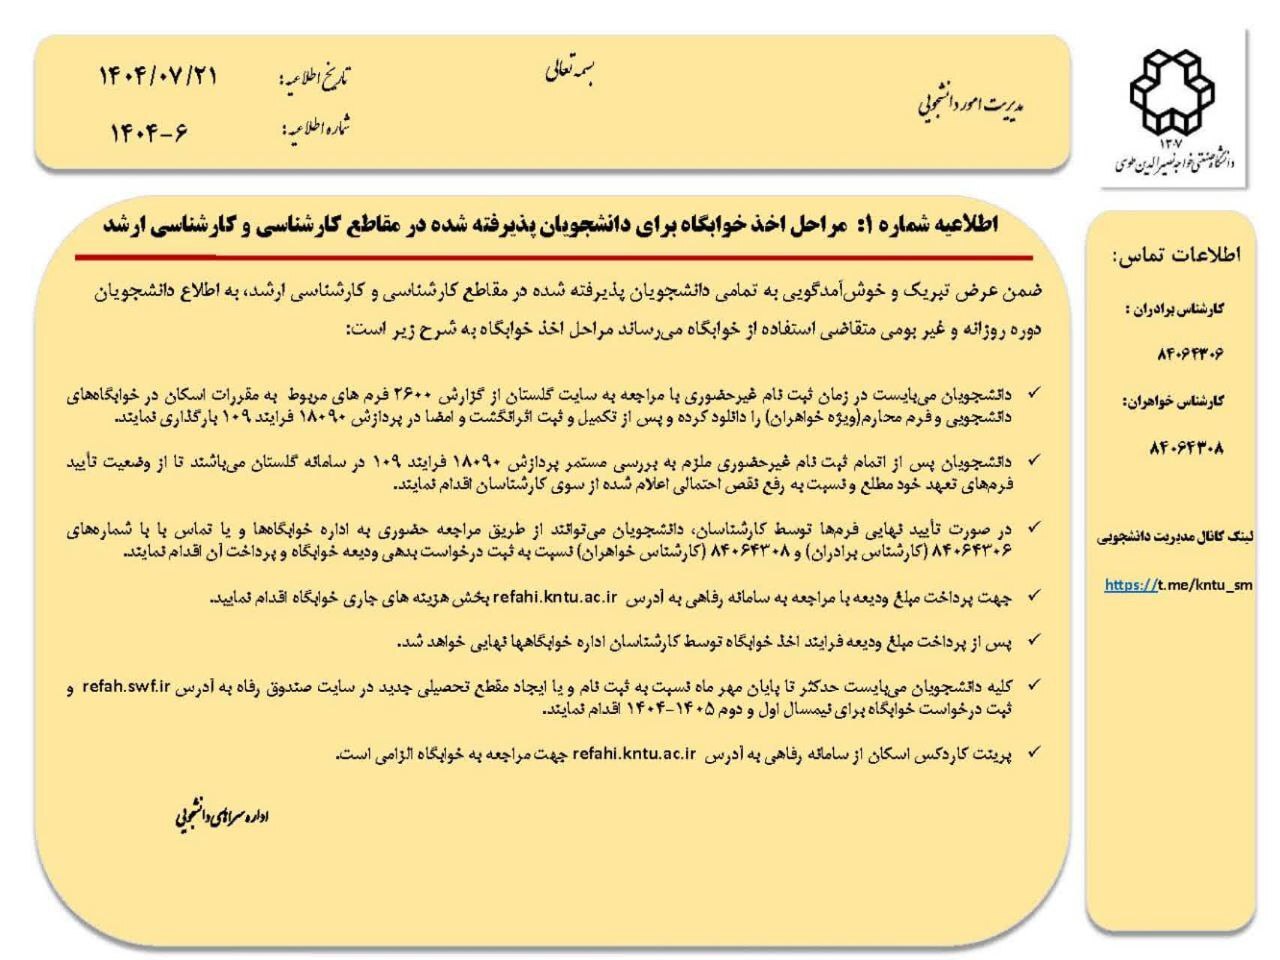 بسمه تعالی
مدیریت امور دانشجویی
تاریخ اطلاعیه: ۱۴۰۴/۰۷/۲۱
شماره اطلاعیه: ۱۴۰۴-۶
۱۳۰۷
دانشگاه صنعتی خواجه نصیرالدین طوسی
اطلاعیه شماره ۱: مراحل اخذ خوابگاه برای دانشجویان پذیرفته شده در مقاطع کارشناسی و کارشناسی ارشد
ضمن عرض تبریک و خوش‌آمدگویی به تمامی دانشجویان پذیرفته شده در مقاطع کارشناسی و کارشناسی ارشد، به اطلاع دانشجویان
دوره روزانه و غیر بومی متقاضی استفاده از خوابگاه می‌رساند مراحل اخذ خوابگاه به شرح زیر است:
✓ دانشجویان می‌بایست در زمان ثبت نام غیرحضوری با مراجعه به سایت گلستان از گزارش ۲۶۰۰ فرم های مربوط به مقررات اسکان در خوابگاه‌های
دانشجویی و فرم محارم(ویژه خواهران) را دانلود کرده و پس از تکمیل و ثبت اثرانگشت و امضا در پردازش ۱۸۰۹۰ فرایند ۱۰۹ بارگذاری نمایند.
✓ دانشجویان پس از اتمام ثبت نام غیرحضوری ملزم به بررسی مستمر پردازش ۱۸۰۹۰ فرایند ۱۰۹ در سامانه گلستان می‌باشند تا از وضعیت تأیید
فرم‌های تعهد خود مطلع و نسبت به رفع نقص احتمالی اعلام شده از سوی کارشناسان اقدام نمایند.
✓ در صورت تأیید نهایی فرم‌ها توسط کارشناسان، دانشجویان می‌توانند از طریق مراجعه حضوری به اداره خوابگاه‌ها و یا تماس با با شماره‌های
۸۴۰۶۴۳۰۶ (کارشناس برادران) و ۸۴۰۶۴۳۰۸ (کارشناس خواهران) نسبت به ثبت درخواست بدهی ودیعه خوابگاه و پرداخت آن اقدام نمایند.
✓ جهت پرداخت مبلغ ودیعه با مراجعه به سامانه رفاهی به آدرس refahi.kntu.ac.ir بخش هزینه های جاری خوابگاه اقدام نمایید.
✓ پس از پرداخت مبلغ ودیعه فرایند اخذ خوابگاه توسط کارشناسان اداره خوابگاهها نهایی خواهد شد.
✓ کلیه دانشجویان می‌بایست حدکثر تا پایان مهر ماه نسبت به ثبت نام و یا ایجاد مقطع تحصیلی جدید در سایت صندوق رفاه به آدرس refah.swf.ir و
ثبت درخواست خوابگاه برای نیمسال اول و دوم ۱۴۰۵-۱۴۰۴ اقدام نمایند.
✓ پرینت کاردکس اسکان از سامانه رفاهی به آدرس refahi.kntu.ac.ir جهت مراجعه به خوابگاه الزامی است.
اداره سراهای دانشجویی
اطلاعات تماس:
کارشناس برادران :
۸۴۰۶۴۳۰۶
کارشناس خواهران:
۸۴۰۶۴۳۰۸
لینک کانال مدیریت دانشجویی
https://t.me/kntu_sm